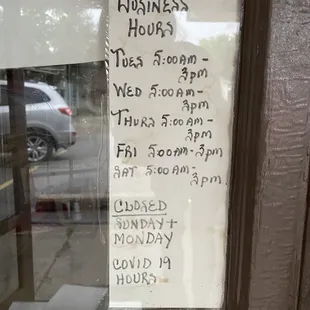 BUSINESS
HOURS
TUES 5:00AM-
3PM
WED 5:00AM-
3PM
THURS 5:00AM-
3PM
FRI 5:00AM-3PM
SAT 5:00AM-
3PM
CLOSED
SUNDAY+
MONDAY
COVID 19
HOURS